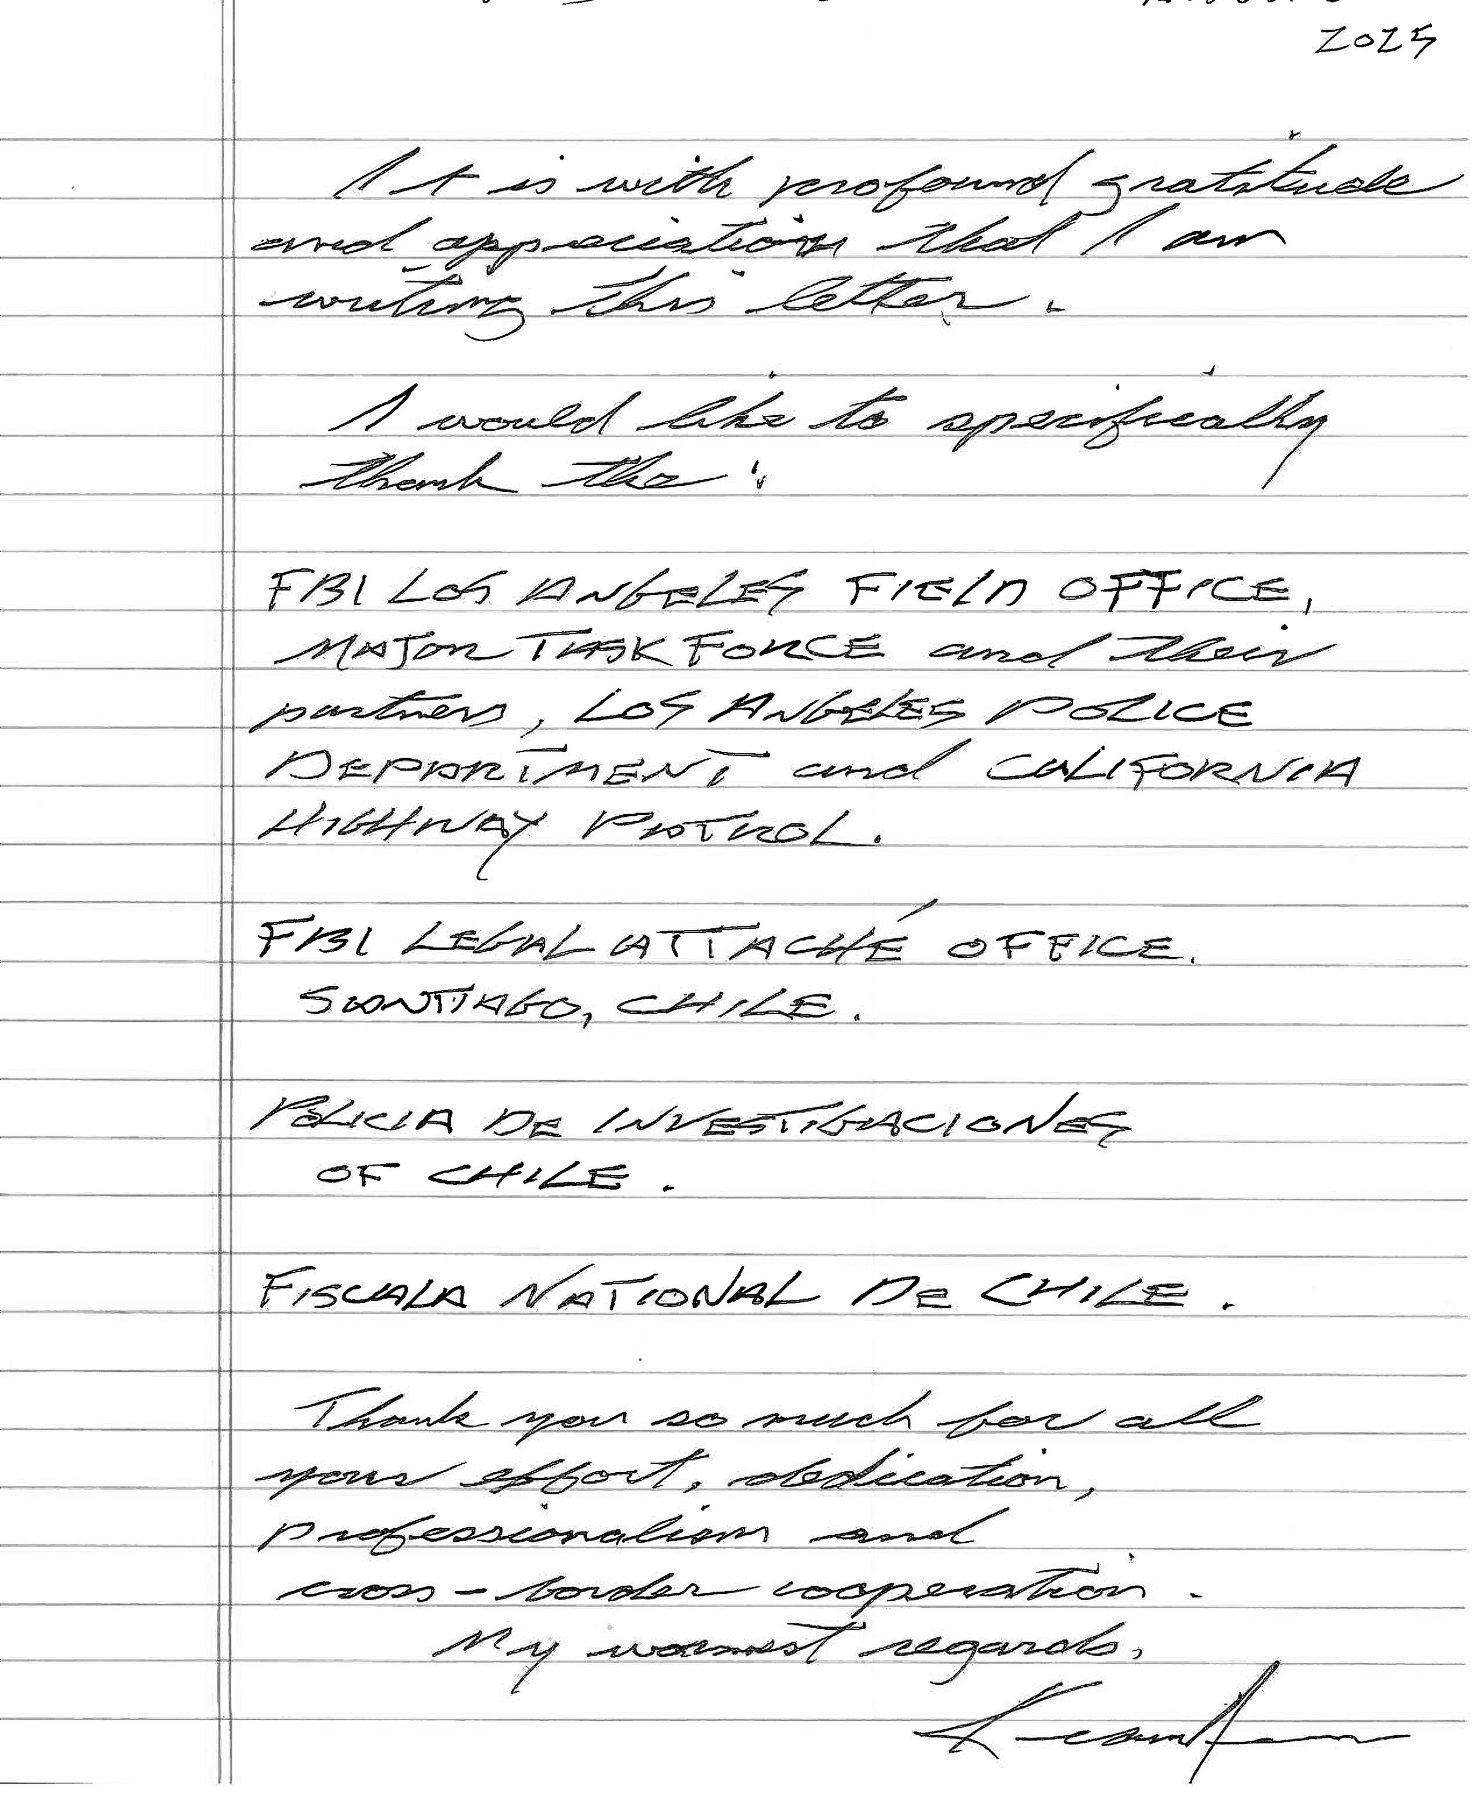 2025
It is with profound gratitude
and appreciation that I am
writing this letter.
I would like to specifically
thank the:
FBI LOS ANGELES FIELD OFFICE,
MAJOR TASK FORCE and their
partners, LOS ANGELES POLICE
DEPARTMENT and CALIFORNIA
HIGHWAY PATROL.
FBI LEGAL ATTACHÉ OFFICE.
SANTIAGO, CHILE.
POLICIA DE INVESTIGACIONES
OF CHILE.
FISCALA NATIONAL DE CHILE.
Thank you so much for all
your effort, dedication,
professionalism and
cross-border cooperation.
My warmest regards,